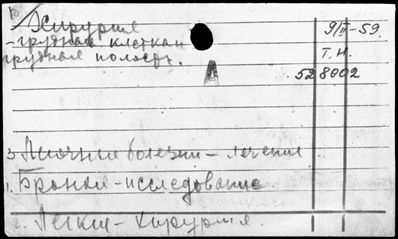 Хирургия
- грудная клетка и
грудная полость.
9/II-59.
Т.Н.
528002
3 Легочные болезни - лечение
1. Бронхи - исследование.
2. Легкие - хирургия.